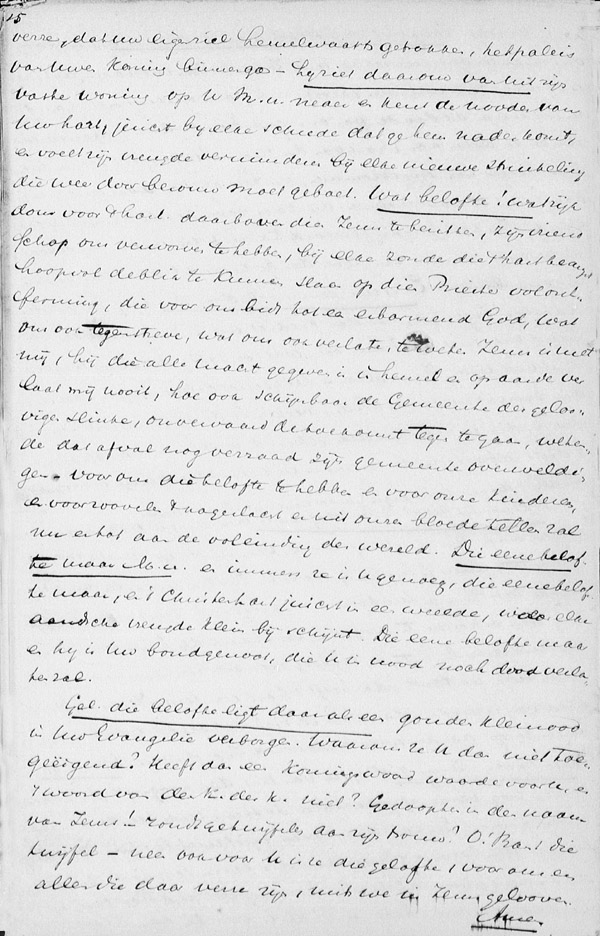 15
verre, dat uw eigen ziel hemelwaarts getrokken, het paleis
van Uwen Koning binnenga – Hij ziet daarom van uit zijn
vaste woning op U M.n. neder en kent de nooden van
Uw hart, juicht bij elke schrede dat ge hem nader komt,
en voelt zijn vreugde verminderen bij elke nieuwe struikeling
die weer door berouw moet geboet. Wat belofte! wat rijk
dom voor 't hart daarboven dien Jezus te bezitten, zijn vriend
schap ons verworven te hebben, bij elke zonde die 't hart beangst
hoopvol de blik te kunnen slaan op dien Priester vol ont-
ferming, die voor ons bidt tot een erbarmend God, Wat
ons ook tegenstreve, wat ons ook verlate, te weten Jezus is met
mij, hij die alle macht gegeven is in hemel en op aarde ver
laat mij nooit, hoe ook schijnbaar de Gemeente der geloo-
vigen slinke, onvervaard de toekomst tegen te gaan, weten-
de dat afval nog verraad zijn gemeente overweldi-
gen – voor ons die belofte te hebben en voor onze kinderen,
en voor zoovelen 't nageslacht er uit onzen bloede tellen zal
nu en tot aan de voleinding der wereld. Die eene belof-
te maar M.n. en immers ze is U genoeg, die eene belof-
te maar, en 't Christenhart juicht in een weelde, waar elke
aardsche vreugde klein bij schijnt. Die eene belofte maar
en hij is Uw bondgenoot, die U in nood noch dood verla-
ten zal.
Gel. die belofte ligt daar als een gouden kleinood
in Uw Evangelie verborgen. Waarom ze U dan niet toe-
geëigend? Heeft dan een Koningswoord waarde voor U, en
't woord van den K. der K. niet? Gedoopten in den naam
van Jezus! – zoudt ge twijfelen aan zijn trouw? O! Bant die
twijfel – neen ook voor U is ze die gelofte, voor ons en
allen die daar verre zijn, mits we in Jezus gelooven.
Amen